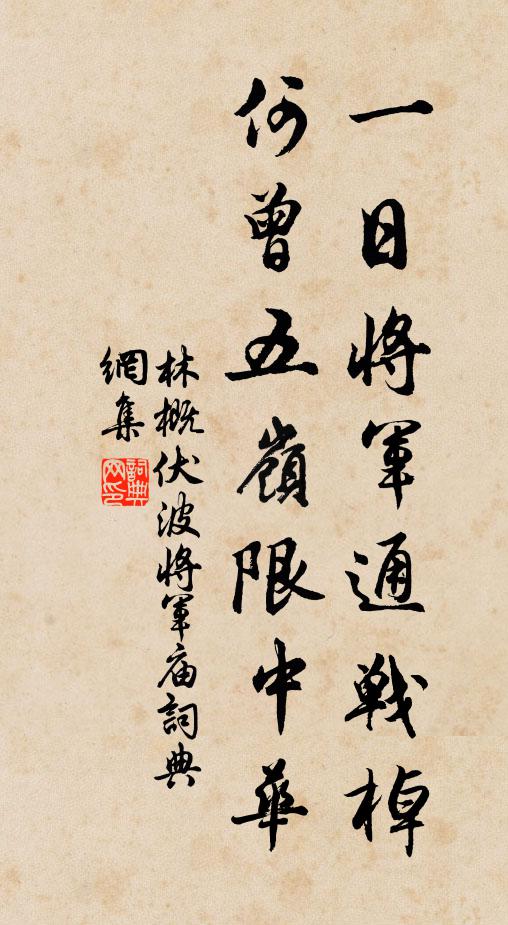 一日將軍通戰棹
何曾五嶺限中華
林概伏波將軍庙詞典
網集
詞典
网印